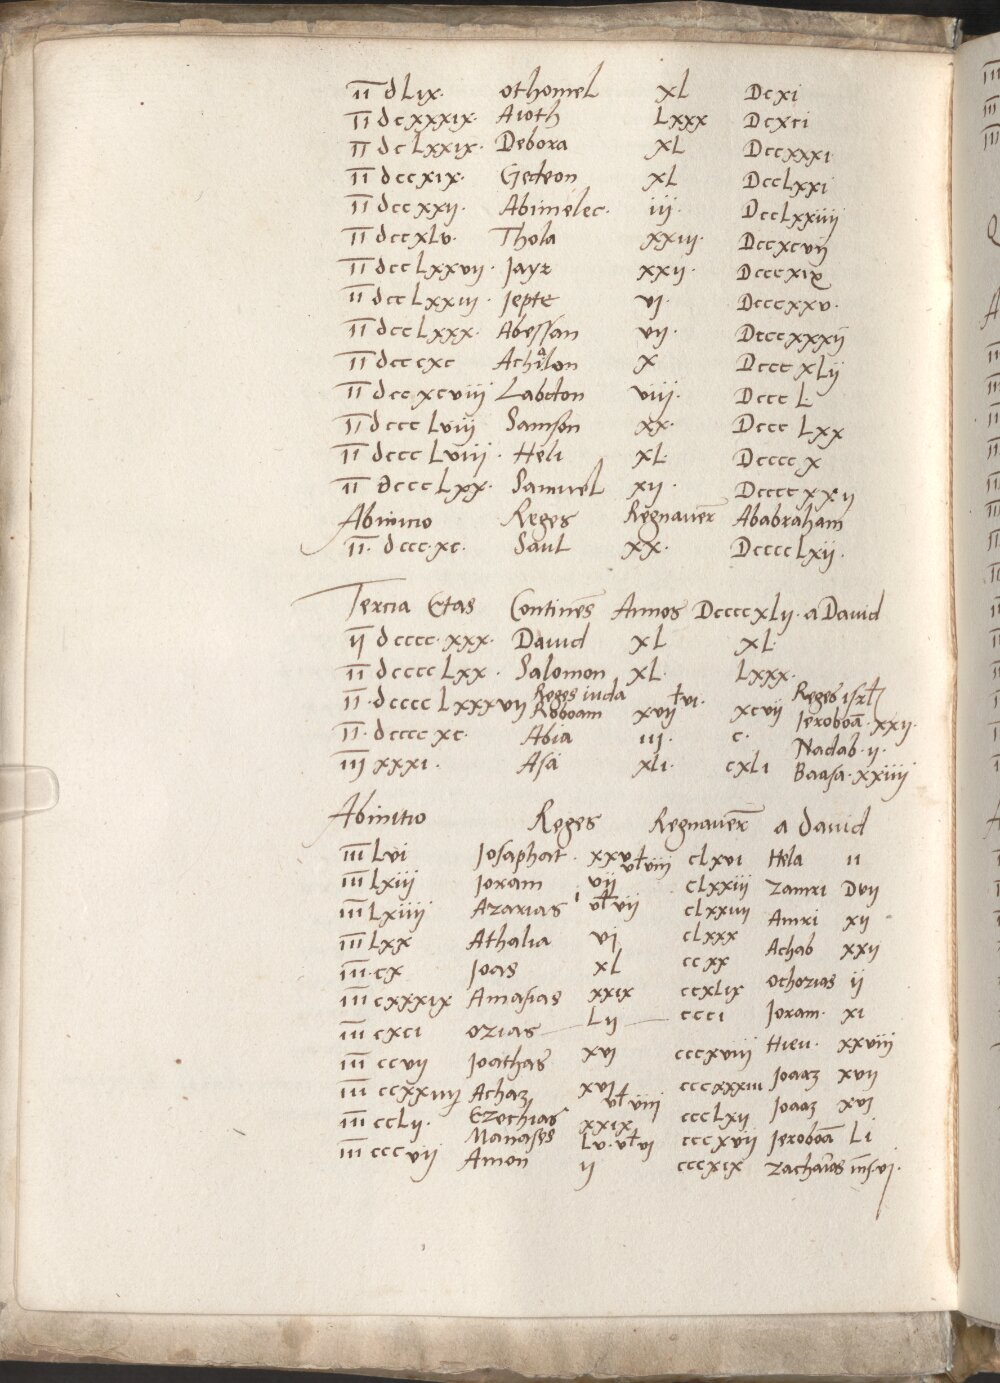 I̅I̅ dLix. othomel XL Dcxi
I̅I̅ dcxxxix. Aioth Lxxx Dcxci
I̅I̅ dcLxxix. Debora XL Dccxxxi
I̅I̅ dccxix. Gedeon XL DccLxxi
I̅I̅ dccxxij. Abimelec. iij. DccLxxiiij
I̅I̅ dccxLv. Thola xxiij. Dccxcvij
I̅I̅ dccLxxvij. Jayr xxij. Dcccxix
I̅I̅ dccLxxiij. Jepte vj. Dcccxxv.
I̅I̅ dccLxxx. Abessan vij. Dcccxxxij
I̅I̅ dcccxc Achialon X DcccxLij
I̅I̅ dccxcviij Labdon viij. DcccL.
I̅I̅ dcccLviij Samson xx. DcccLxx
I̅I̅ dcccLviij. Heli XL. Dccccx
I̅I̅ dcccLxx. Samuel xij. Dccccxxij
Abinitio Reges Regnauer̄ Ababraham
I̅I̅. dccc.xc. Saul xx. DccccLxij.
Tercia Etas Continēs Annos DccccxLij. a Dauid
I̅I̅ dcccc.xxx. Dauid XL XL.
I̅I̅ dccccLxx. Salomon XL. Lxxx.
I̅I̅.dccccLxxxvij Reges iuda Roboam xvij ɫvi. xcvij Reges isrɫ Jeroboā.xxij.
I̅I̅.dccccxc. Abia iij. c. Nadab.ij.
I̅I̅I̅ xxxi. Asa xLi. cxLi Baasa.xxiiij
Abinitio Reges Regnauer̄ a dauid
I̅I̅I̅Lvi Josaphat. xxv vɫviij cLxvi Hela ii
I̅I̅I̅Lxiij Joram vij cLxxiij Zamri Dvij
I̅I̅I̅Lxiiij Azarias i vɫvij cLxxiiij Amri xij
I̅I̅I̅Lxx Athalia vj cLxxx Achab xxij
I̅I̅I̅.cx Joas xL ccxx ochozias ij
I̅I̅I̅cxxxix Amasias xxix ccxLix Joram. xi
I̅I̅I̅cxci ozias Lij ccci Hieu. xxviij
I̅I̅I̅ccvij Joathas xvj cccxviij Joaaz xvij
I̅I̅I̅ccxxiiij Achaz xvj vɫviij cccxxxiiij Joaaz xvj
I̅I̅I̅ccLij. Ezechias xxix cccLxij Jeroboā Li
I̅I̅I̅cccvij Manases Lv.vɫvi cccxvij Zacharias m̄s.vj.
Amon ij cccxix